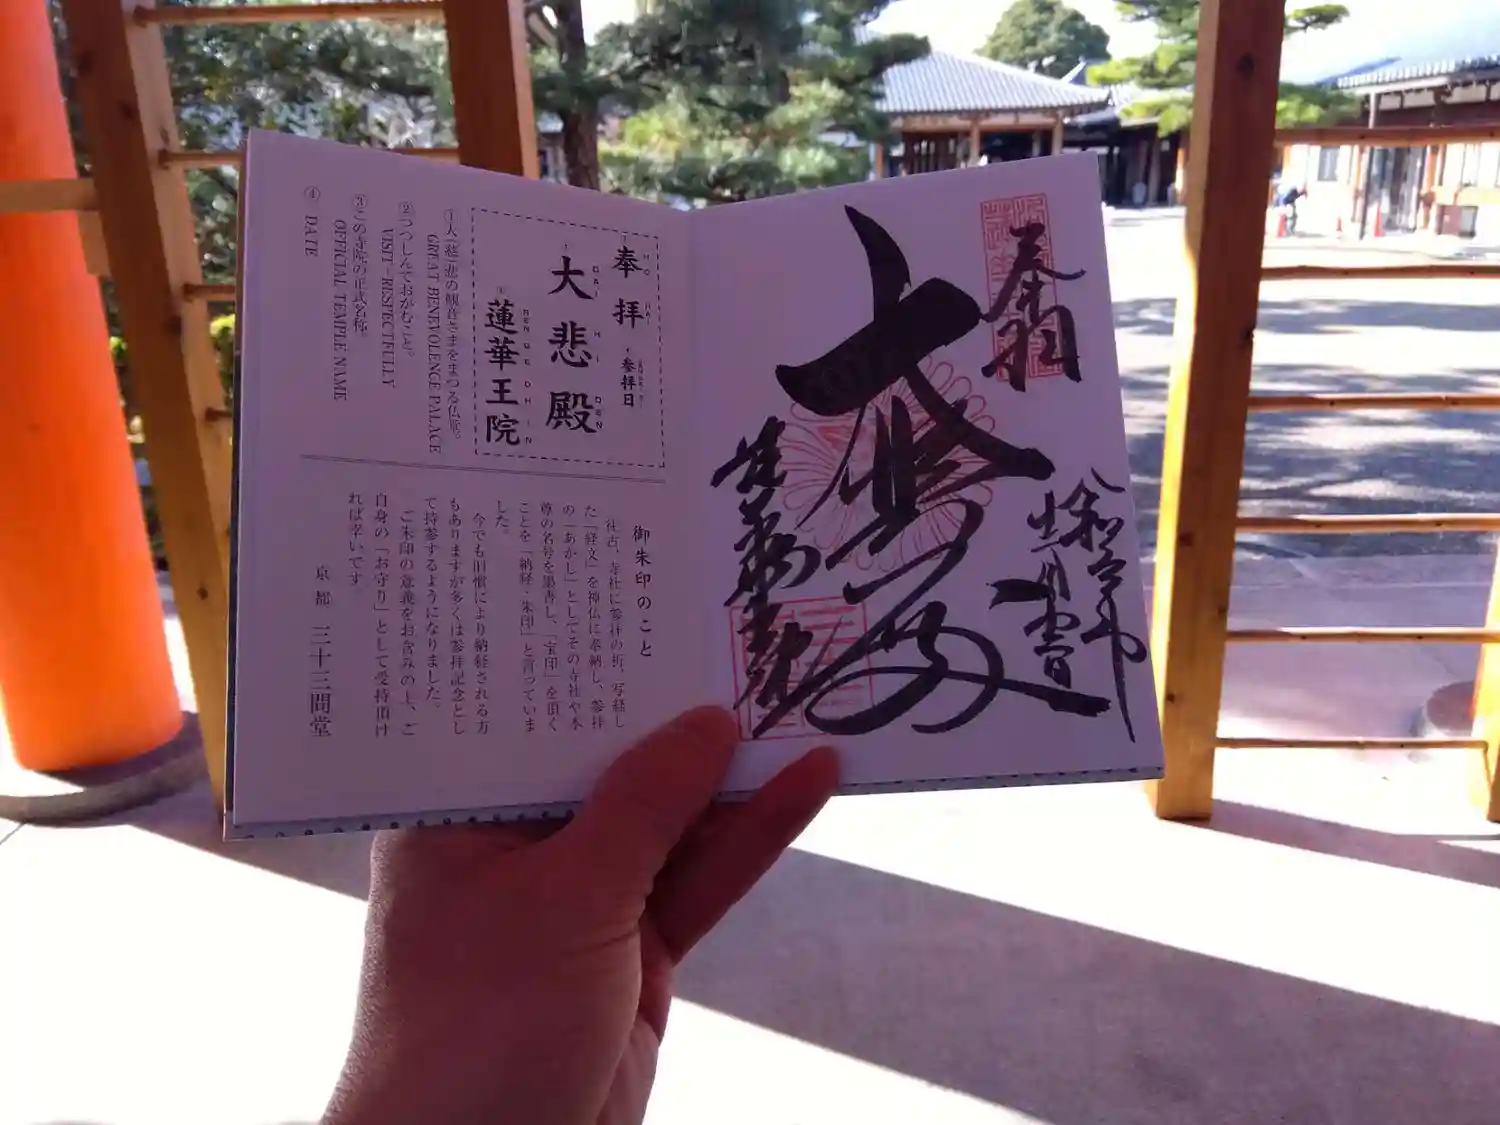 奉拝
大悲殿
蓮華王院
奉拝
HO HAI
参拝日
大悲殿
DAI HI DEN
蓮華王院
REN GE OH IN
①大(慈)悲の観音さまをまつる仏堂。
GREAT BENEVOLENCE PALACE
②つつしんでおがむこと。
VISIT–RESPECTFULLY
③この寺院の正式名称。
OFFICIAL TEMPLE NAME
④ DATE
御朱印のこと
往古、寺社に参拝の折、写経し
た「経文」を神仏に奉納し、参拝
の「あかし」としてその寺社や本
尊の名号を墨書し、「宝印」を頂く
ことを「納経・朱印」と言っていま
した。
今でも旧慣により納経される方
もありますが多くは参拝記念とし
て持参するようになりました。
ご朱印の意義をお含みの上、ご
自身の「お守り」として受持頂け
れば幸いです。
京都 三十三間堂